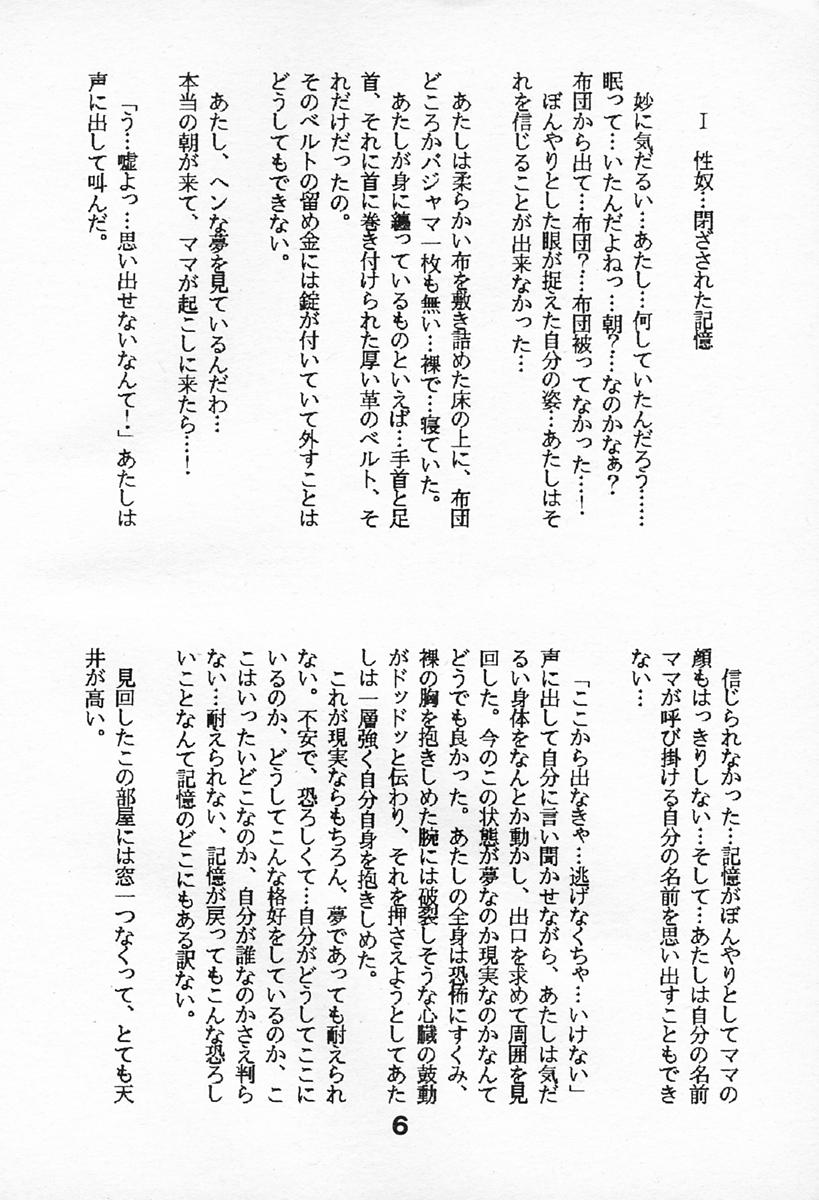 Ⅰ　性奴…閉ざされた記憶
妙に気だるい…あたし…何していたんだろう……
眠って…いたんだよねっ…朝？…なのかなぁ？
布団から出て…布団？…布団被ってなかった…！
ぼんやりとした眼が捉えた自分の姿…あたしはそ
れを信じることが出来なかった…
あたしは柔らかい布を敷き詰めた床の上に、布団
どころかパジャマ一枚も無い…裸で…寝ていた。
あたしが身に纏っているものといえば…手首と足
首、それに首に巻き付けられた厚い革のベルト、そ
れだけだったの。
そのベルトの留め金には錠が付いていて外すことは
どうしてもできない。
あたし、ヘンな夢を見ているんだわ…
本当の朝が来て、ママが起こしに来たら…！
「う…嘘よっ…思い出せないなんて！」あたしは
声に出して叫んだ。
信じられなかった…記憶がぼんやりとしてママの
顔もはっきりしない…そして…あたしは自分の名前
ママが呼び掛ける自分の名前を思い出すこともでき
ない…
「ここから出なきゃ…逃げなくちゃ…いけない」
声に出して自分に言い聞かせながら、あたしは気だ
るい身体をなんとか動かし、出口を求めて周囲を見
回した。今のこの状態が夢なのか現実なのかなんて
どうでも良かった。あたしの全身は恐怖にすくみ、
裸の胸を抱きしめた腕には破裂しそうな心臓の鼓動
がドッドッと伝わり、それを押さえようとしてあた
しは一層強く自分自身を抱きしめた。
これが現実ならもちろん、夢であっても耐えられ
ない。不安で、恐ろしくて…自分がどうしてここに
いるのか、どうしてこんな格好をしているのか、こ
こはいったいどこなのか、自分が誰なのかさえ判ら
ない…耐えられない、記憶が戻ってもこんな恐ろし
いことなんて記憶のどこにもある訳ない。
見回したこの部屋には窓一つなくって、とても天
井が高い。
6